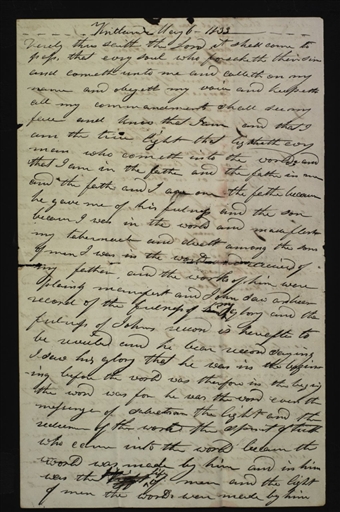 Kirtland May 6 - 1833
Verely thus saith the Lord it shall come to
pass, that every soul who forsaketh their sins
and cometh unto me and calleth on my
name and obeyeth my voice and keepeth
all my commandments shall see my
face and know that I am and that I
am the true light that lighteth every
man who cometh into the world and
that I am in the father and the father in me
and the father and I are one the father because
he gave me of his fulness and the son
because I was in the world and made flesh
my tabernacle and dwelt among the sons
of men I was in the world and received of
my father and the works of him were
plainly manifest and John saw and bore
record of the fulness of my glory and the
fulness of Johns record is hereafter to
be revealed and he bear record saying
I saw his glory that he was in the beginn
ing before the world was therefore in the begin
the word was for he was the word even the
messenger of salvation the light and the
redeemer of the world the spirit of truth
who came into the world because the
world was made by him and in him
was the life of men and the light
of men the worlds were made by him